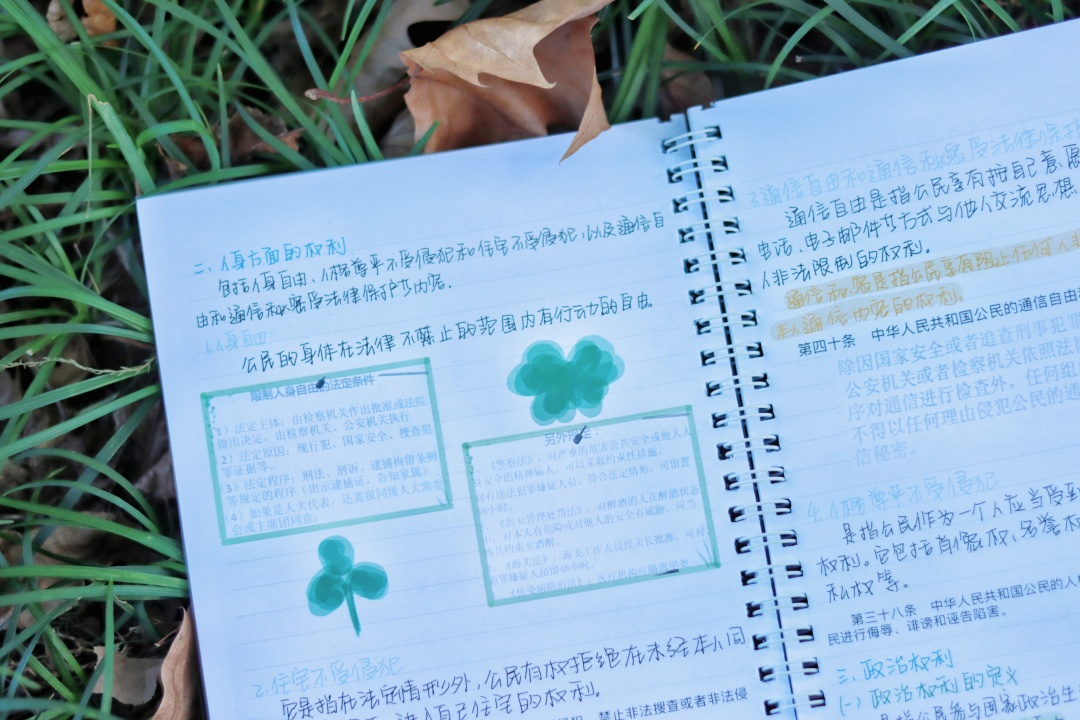 二、人身方面的权利
包括人身自由、人格尊严不受侵犯和住宅不受侵犯,以及通信自
由和通信秘密受法律保护等内容.
1.人身自由:
公民的身体在法律不禁止的范围内有行动的自由.
限制人身自由的法定条件
1)法定主体:由检察机关作出批准或法院
做出决定,由检察机关、公安机关执行
2)法定原因:现行犯、国家安全、搜查犯
罪证据等。
3)法定程序:刑法、刑诉、逮捕拘留条例
等规定的程序(出示逮捕证,告知家属)
(4)如果是人大代表,还需报同级人大常委
会或主席团同意;
另外
《警察法》:对严重的危害公共安全或他人人
身安全的精神病人,可以采取约束性措施。
对有违法犯罪嫌疑人员,符合法定情形,可留置
48小时。
《治安管理处罚法》:对醉酒的人在醉酒状态
中,对本人有危险或对他人的安全有威胁,应当
将其约束至酒醒。
《海关法》:海关工作人员经关长批准,可对
犯罪嫌疑人扣留48小时。
《传染病防治法》:医疗机构可
2.住宅不受侵犯
它是指在法定情形外,公民有权拒绝在未经本人同
进入自己住宅的权利。
禁止非法搜查或者非法侵
3.通信自由和通信秘密受法律保护
通信自由是指公民享有按自己意愿
电话、电子邮件等方式与他人交流思想
人非法限制的权利.
通信秘密是指公民享有阻止任何人非
本人通信内容的权利.
第四十条 中华人民共和国公民的通信自由
除因国家安全或者追查刑事犯罪
公安机关或者检察机关依照法律
序对通信进行检查外,任何组
不得以任何理由侵犯公民的通
信秘密。
4.人格尊严不受侵犯
是指公民作为一个人应当受到
权利。它包括肖像权,名誉权
私权等。
第三十八条 中华人民共和国公民的人
民进行侮辱、诽谤和诬告陷害。
三、政治权利
(一)政治权利的定义
是指公民参与国家政治生